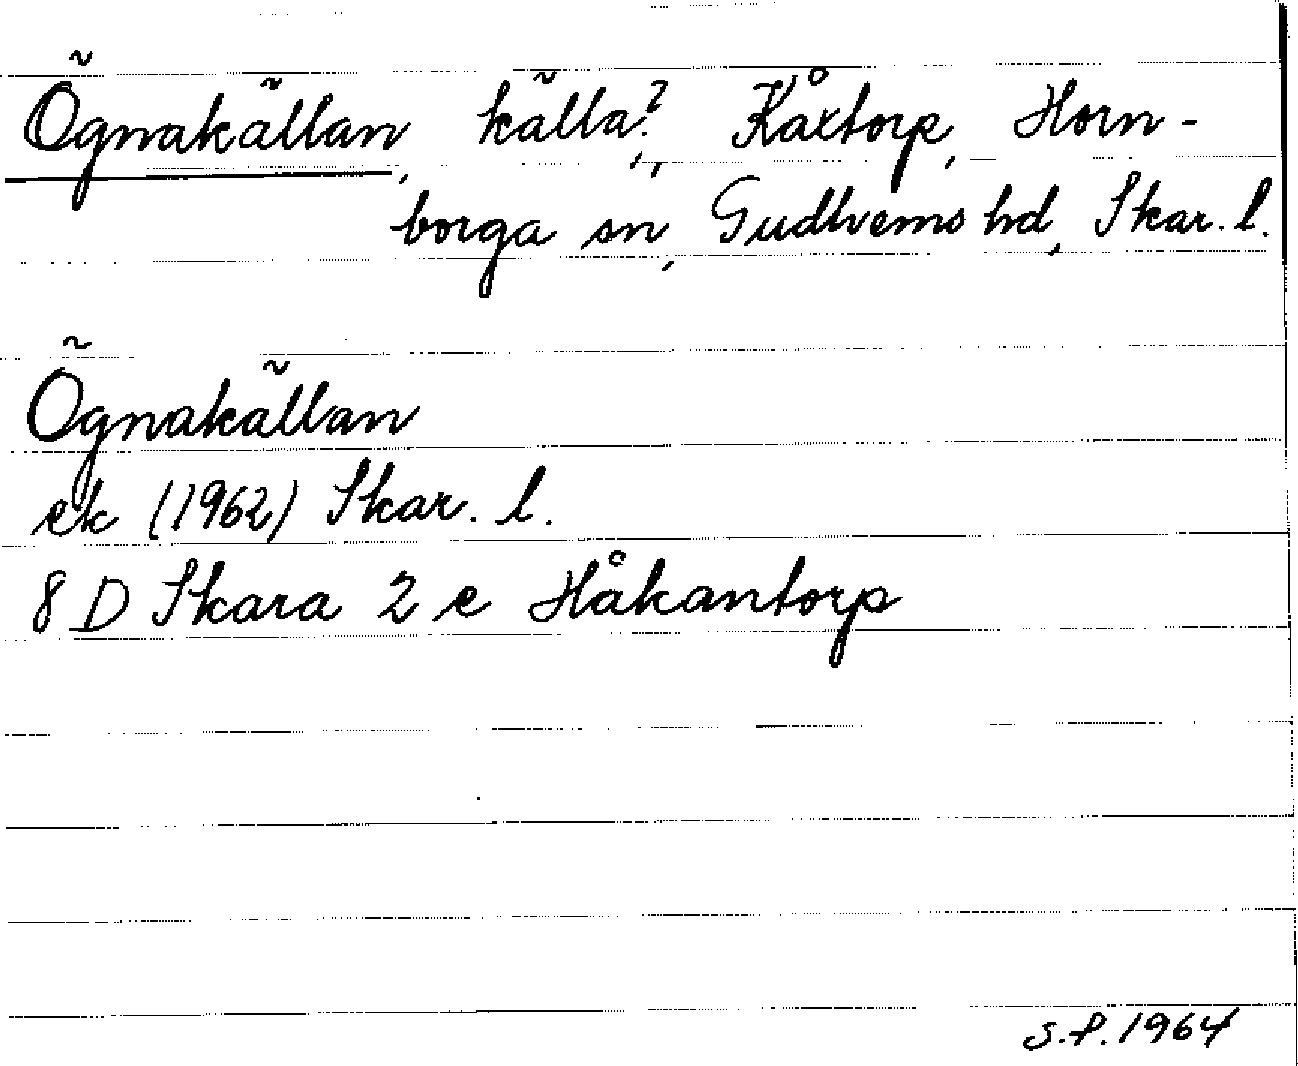 Ögnakällan, källa?, Kåxtorp, Horn-
borga sn, Gudhems hd, Skar. l.
Ögnakällan
ek (1962) Skar. l.
8 D Skara 2 e Håkantorp
S.P. 1964